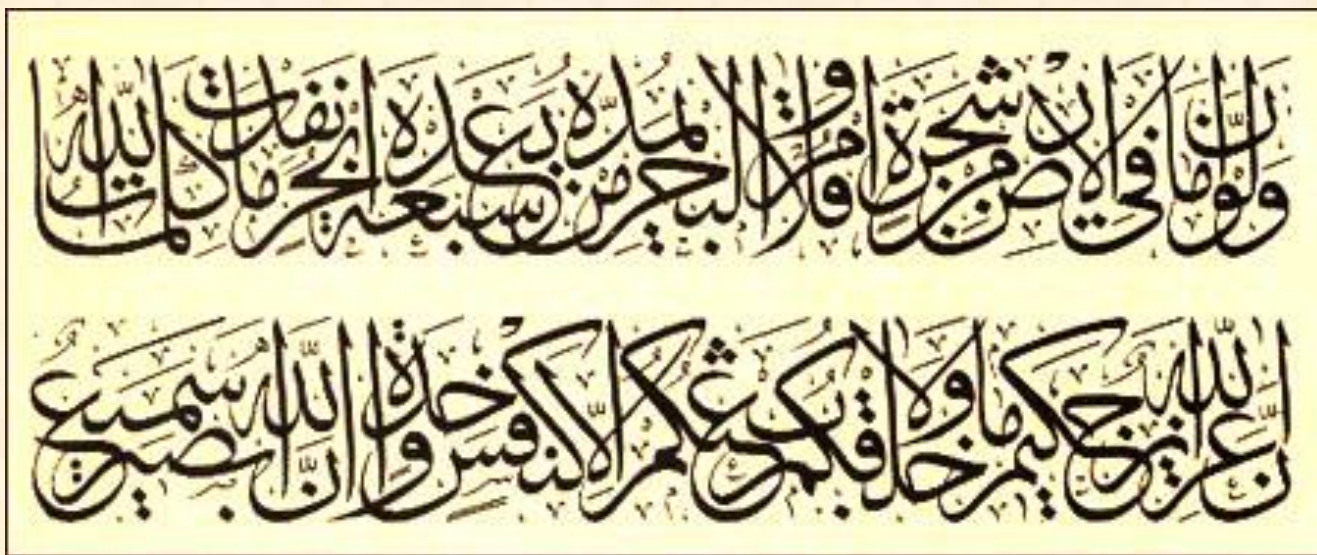 ولو أن ما في الأرض من شجرة أقلام والبحر يمده من بعده سبعة أبحر ما نفدت كلمات الله
إن الله عزيز حكيم ما خلقكم ولا بعثكم إلا كنفس واحدة إن الله سميع بصير